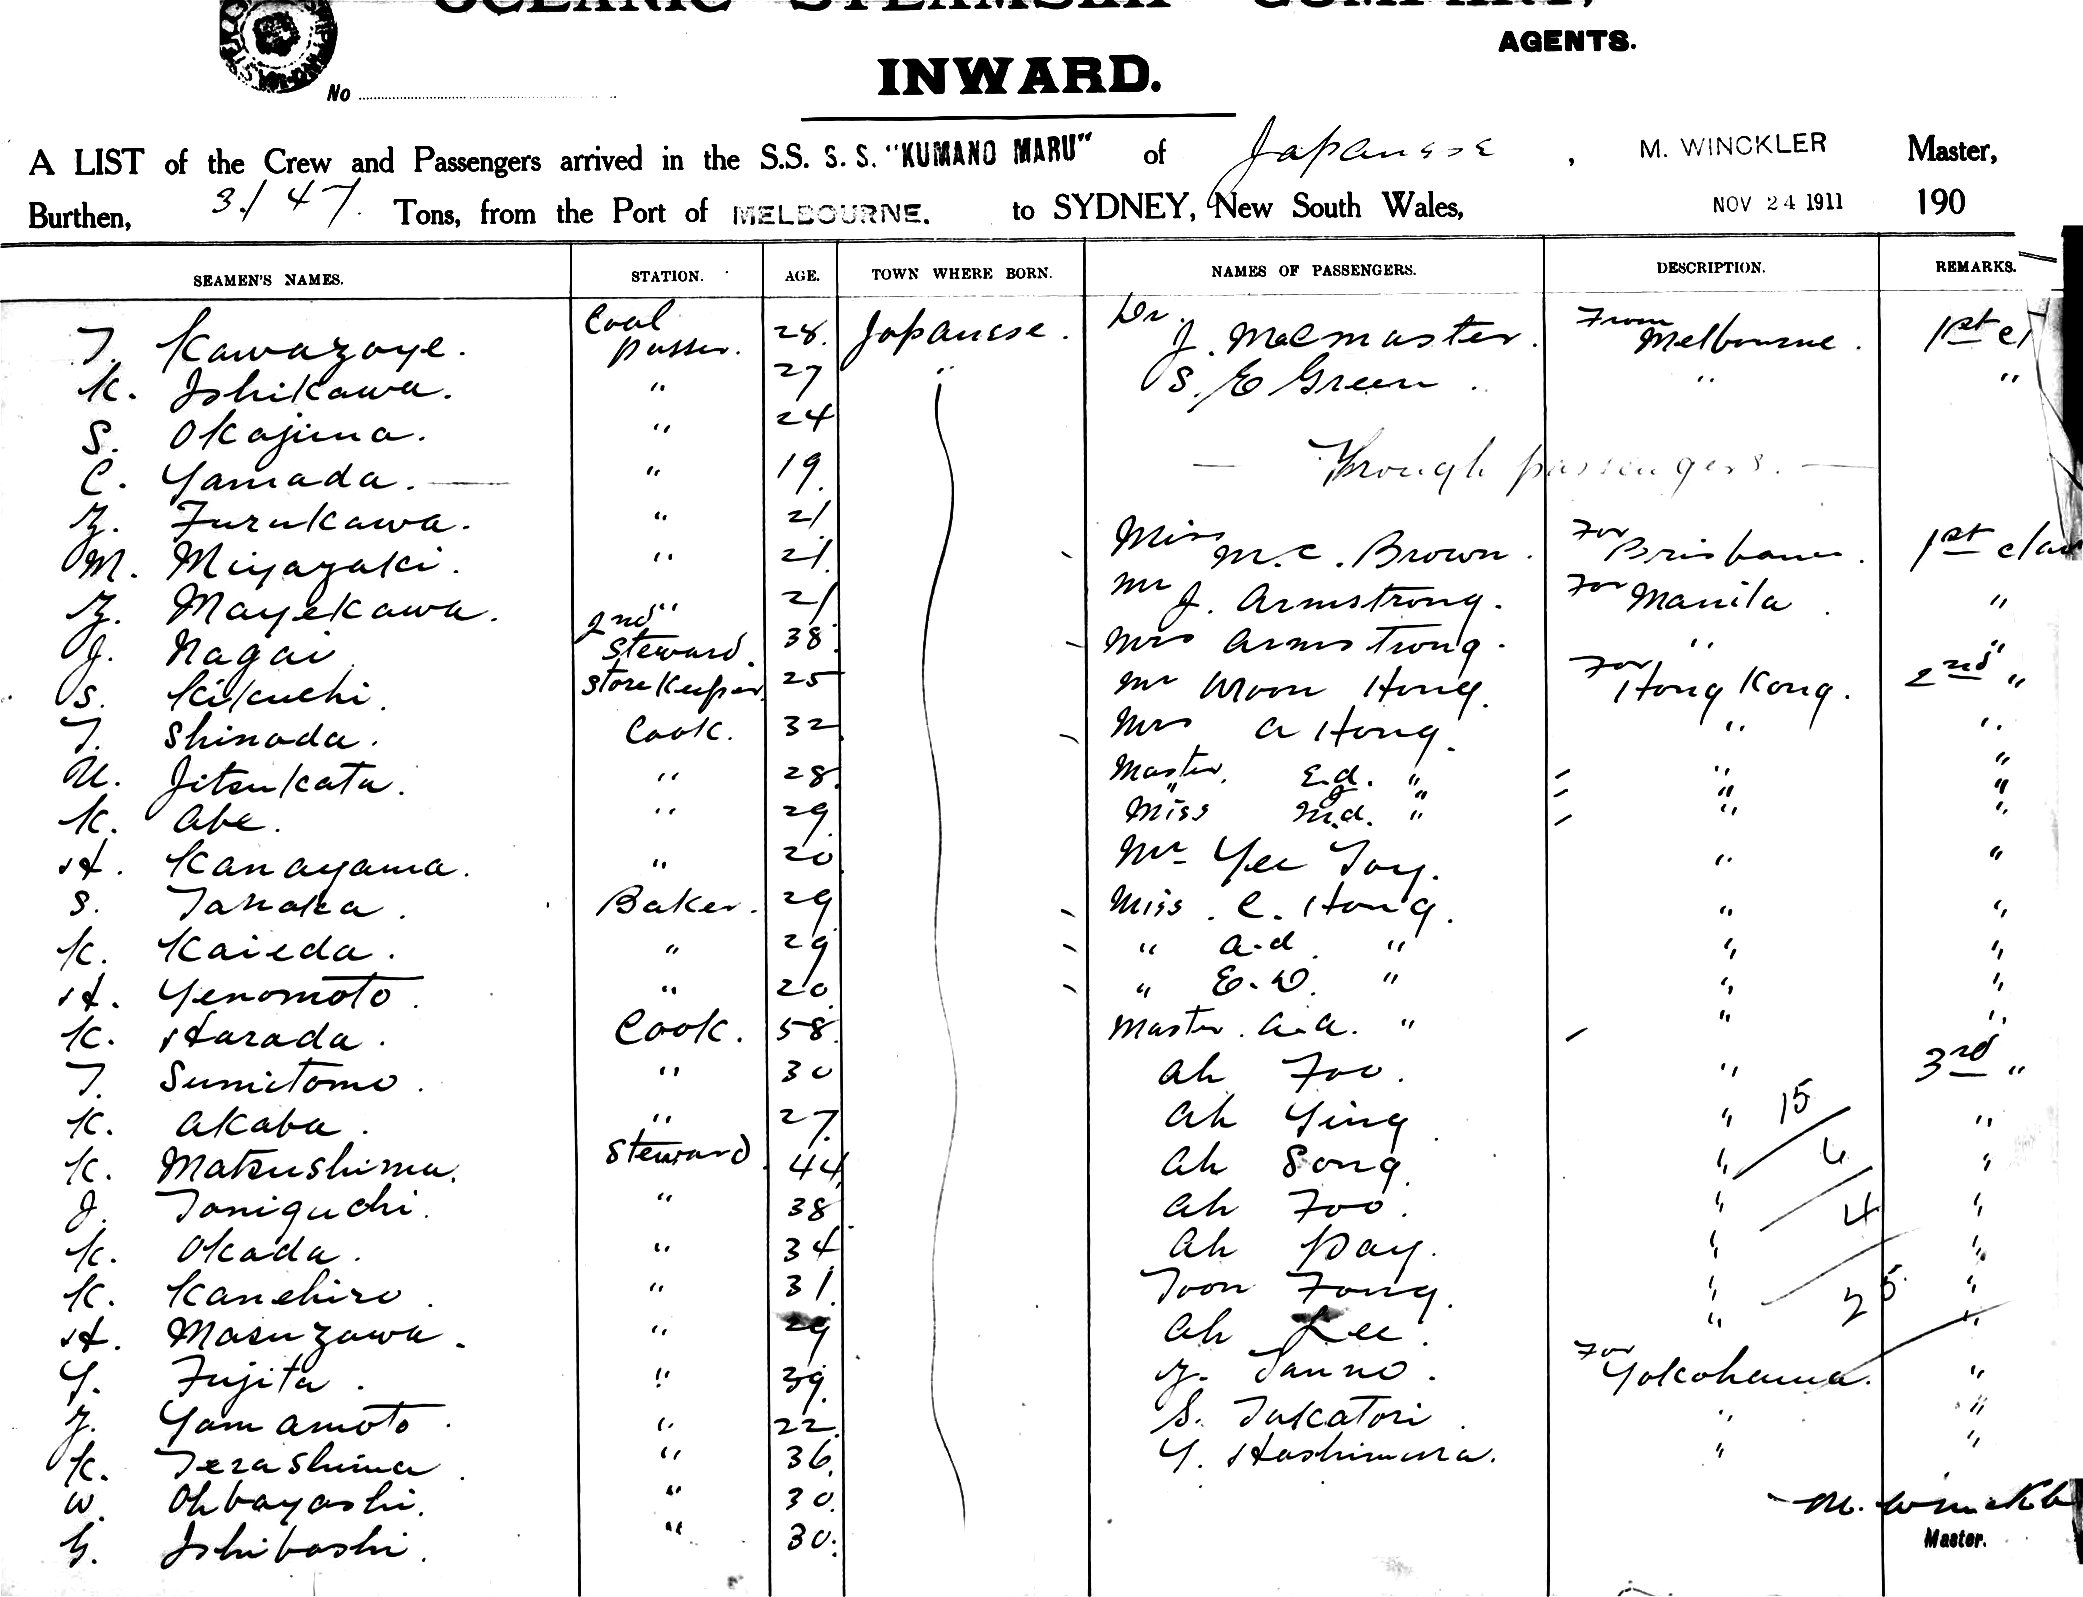 OCEANIC STEAMSHIP COMPANY,
AGENTS.
INWARD.
No
A LIST of the Crew and Passengers arrived in the S.S. S. S. "KUMANO MARU" of Japanese, M. WINCKLER Master,
Burthen, 3147 Tons, from the Port of MELBOURNE. to SYDNEY, New South Wales, NOV 24 1911 190
SEAMEN'S NAMES. STATION. AGE. TOWN WHERE BORN. NAMES OF PASSENGERS. DESCRIPTION. REMARKS.
T. Kawazoye. Coal passer. 28. Japanese. Dr. J. McMaster. From Melbourne. 1st cl
K. Ishikawa. " 27 " S. E Green. " "
S. Okajima. " 24
C. Yamada. " 19. — Through passengers. —
Z. Furukawa. " 21
M. Miyazaki. " 21. Miss M. C. Brown. For Brisbane. 1st class
Z. Mayekawa. " 21 Mr J. Armstrong. For Manila. "
J. Nagai 2nd Steward. 38. Mrs Armstrong. " "
S. Kikuchi. Storekeeper. 25 Mr Moon Hong. For Hong Kong. 2nd "
T. Shinoda. Cook. 32. Mrs A Hong. " "
U. Jitsukata. " 28. Master. E.d. " " "
" G " " "
K. Abe. " 29. Miss M.d. " " "
H. Kanayama. " 20. Mr Yee Toy. " "
S. Tanaka. Baker. 29 Miss. C. Hong. " "
K. Kaieda. " 29 " A.d. " " "
H. Yenomoto. " 20. " E.D. " " "
K. Harada. Cook. 58. Master. A.A. " " "
T. Sumitomo. " 30 Ah Foo. " 3rd "
K. Akaba. " 27. Ah Ying. " 15 "
K. Matsushima. Steward. 44. Ah Song. " 6 "
J. Taniguchi. " 38 Ah Foo. " 4 "
K. Okada. " 34 Ah Day. " "
K. Kanehiro. " 31. Toon Fong. " 25 "
H. Masuzawa. " 29 Ah Lee. " "
Y. Fujita. " 39. Z. Tanno. For Yokohama. "
Z. Yamamoto. " 22. S. Takatori. " "
K. Terashima. " 36. Y. Hashimura. " "
W. Ohbayashi. " 30. M. Winckle
G. Ishibashi. " 30. Master.